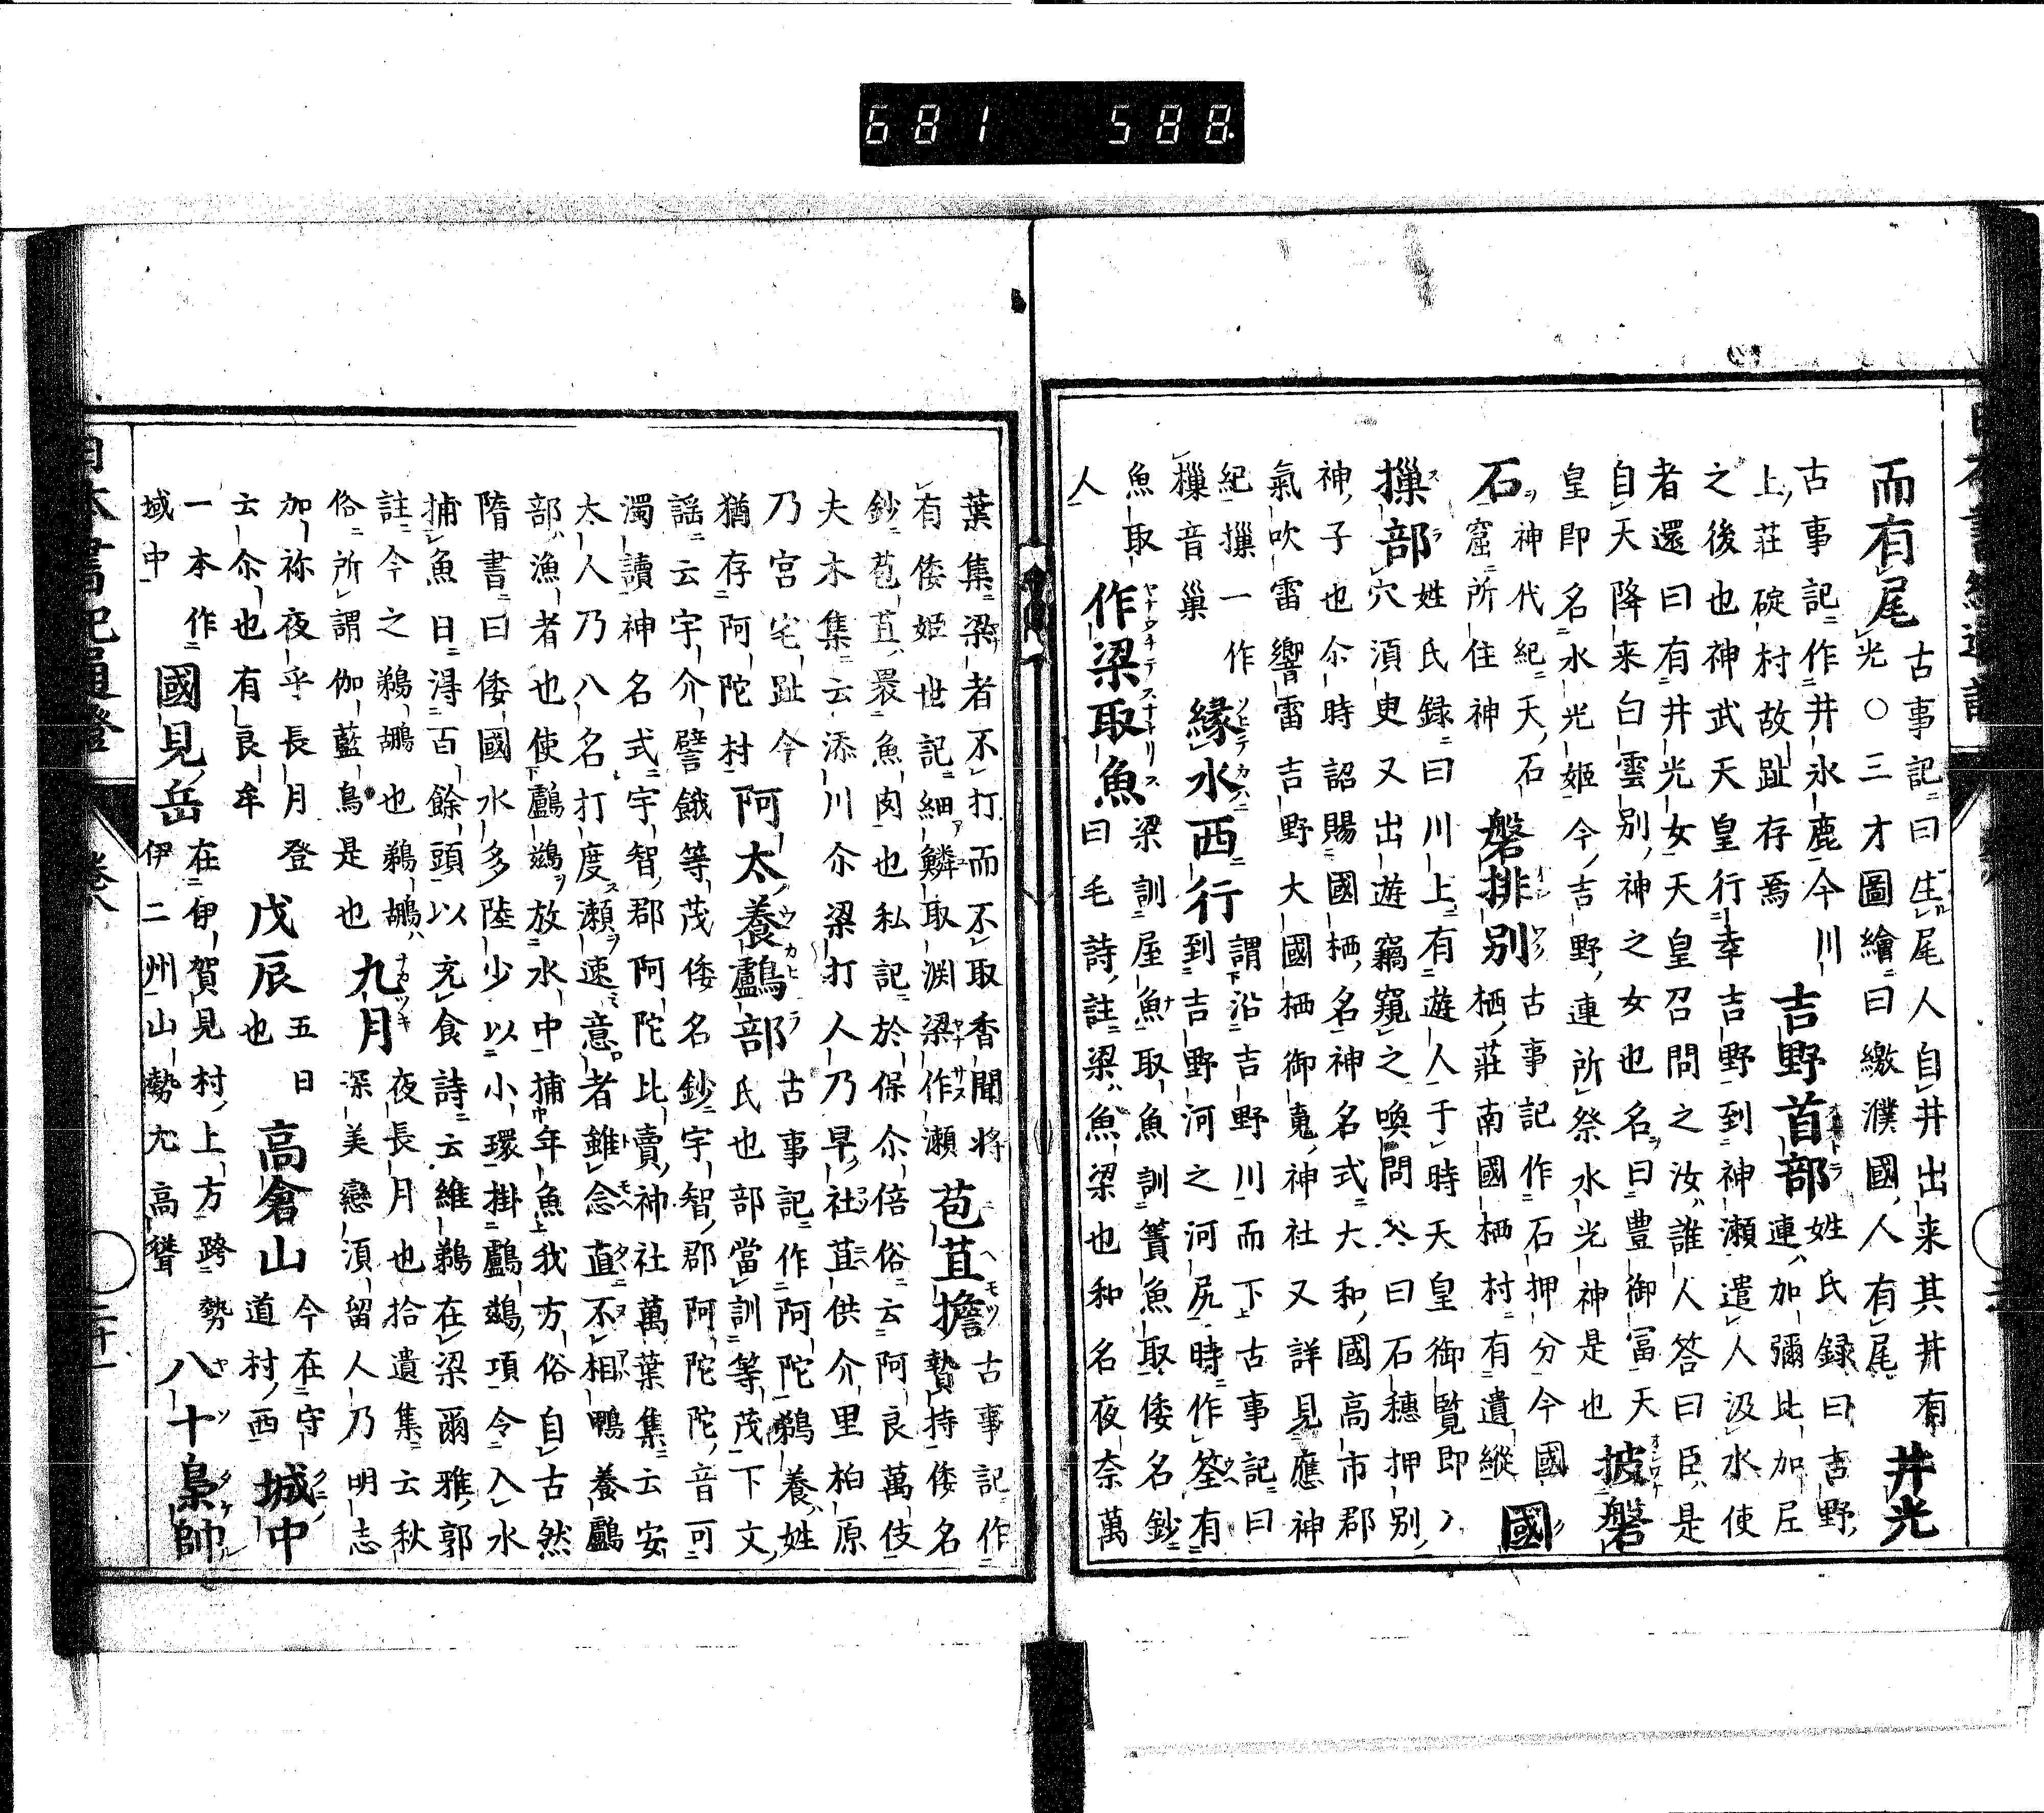 681 588
而有尾
古事記曰生尾人自井出来其井有
光〇三才圖繪曰繳濮國人有尾
井光
古事記作井氷鹿今川
上荘碇村故趾存焉
吉野首部
姓氏録曰吉野
連加彌比加尼
之後也神武天皇行幸吉野到神瀬遣人汲水使
者還曰有井光女天皇召問之汝誰人答曰臣是
自天降来白雲別神之女也名曰豊御冨天
皇即名水光姫今吉野連所祭水光神是也
披磐
石
神代紀天石
窟所住神
磐排別
古事記作石押分今國
栖荘南國栖村有遺縦
國
摷部
姓氏録曰川上有遊人于時天皇御覧即
穴湏吏又出遊竊窺之喚問答曰石穂押別
神子也尒時詔賜國栖名神名式大和國高市郡
氣吹雷響雷吉野大國栖御䰟神社又詳見應神
紀摷一作
樔音巢
縁水西行
謂下沿吉野川而下上古事記曰
到吉野河之河尻時作筌有
魚取
作梁取魚
梁訓屋魚取魚訓簀魚取倭名鈔
曰毛詩註梁魚梁也和名夜奈萬
人
葉集梁者不打而不取香聞将
有倭姫世記細鱗取渕梁作瀬
苞苴擔
古事記作
贄持倭名
鈔苞苴裹魚肉也私記於保尒倍俗云阿良萬伎
夫木集云添川尒梁打人乃早社苴供介里柏原
乃宮宅趾今
猶存阿陀村
阿太養鸕部
古事記作阿陀鵜養姓
氏也部當訓等茂下文
謡云宇介譬餓等茂倭名鈔宇智郡阿陀陀音可
濁讀神名式宇智郡阿陀比賣神社萬葉集云安
太人乃八名打度瀬速意者雖念直不相鴨養鸕
部漁者也使下鸕鷀放水中捕年魚上我方俗自古然
隋書曰倭國水多陸少以小環掛鸕鷀項令入水
捕魚日淂百餘頭以充食詩云維鵜在梁爾雅郭
註今之鵜鶘也鵜鶘
俗所謂伽藍鳥是也
九月
夜長月也拾遺集云秋
深美戀湏留人乃明志
加祢夜乎長月登
云尒也有良牟
戊辰
五日
也
高倉山
今在守
道村西
城中
一本作
域中
國見岳
在伊賀見村上方跨勢
伊二州山勢尢高聳
八十梟帥